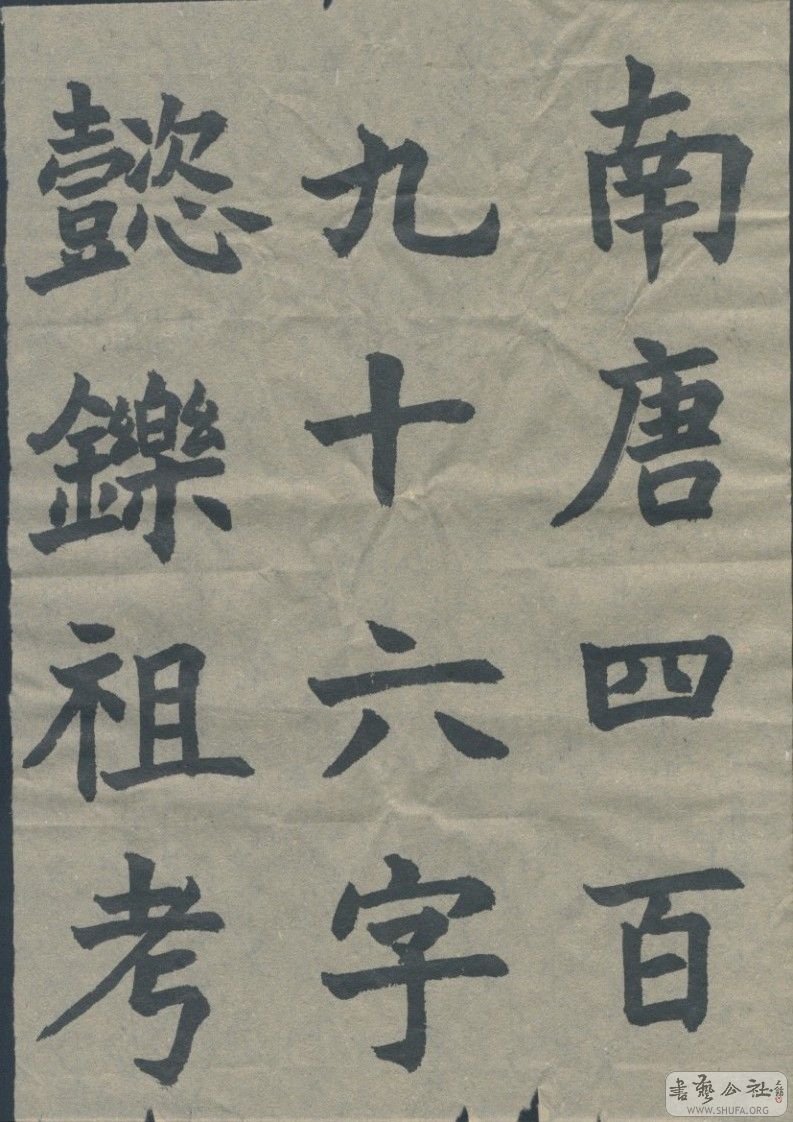 南唐四百
九十六字
懿鑠祖考
書藝公社
WWW.SHUFA.ORG